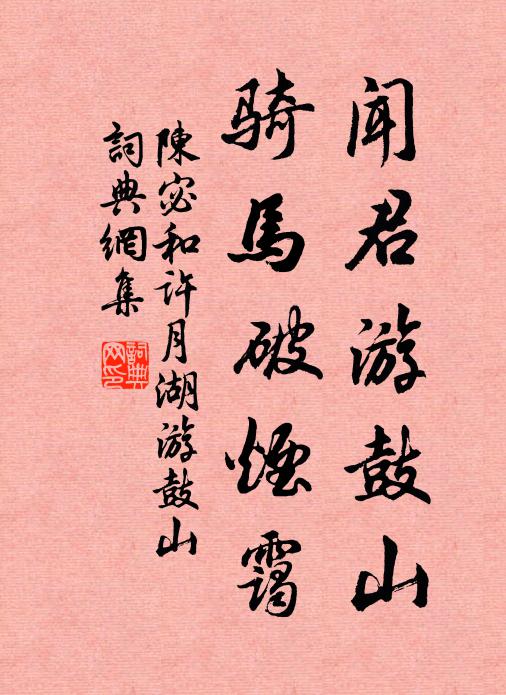 闻君游鼓山
骑馬破煙靄
陳宓和许月湖游鼓山
詞典網集
詞典网印